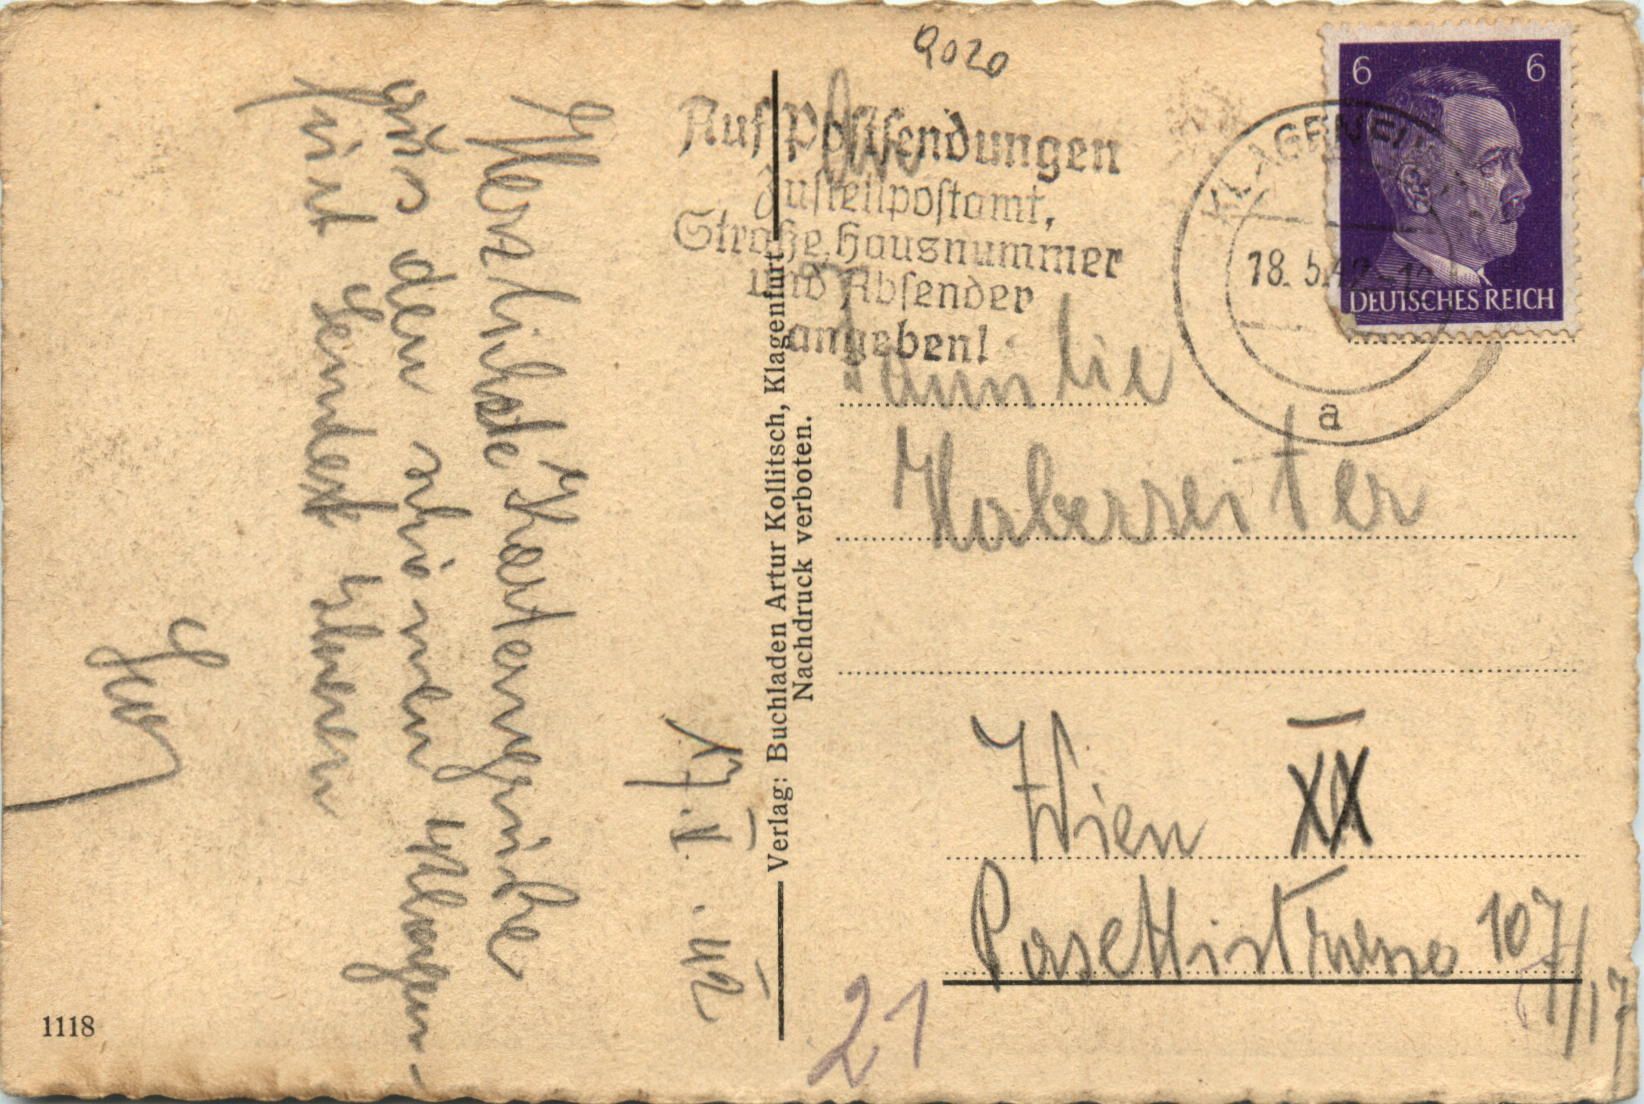 9020
6 6
DEUTSCHES REICH
KLAGENFURT
18. 5. 42
a
Auf Postsendungen
Zustellpostamt,
Straße, Hausnummer
und Absender
angeben!
Familie
Haberreiter
Wien XX
Pasettistrasse 107/17
21
Verlag: Buchladen Artur Kollitsch, Klagenfurt.
Nachdruck verboten.
17. V. 42
Herzlichste Kartengrüße
aus den schönen Klagen-
furt sendet
1118